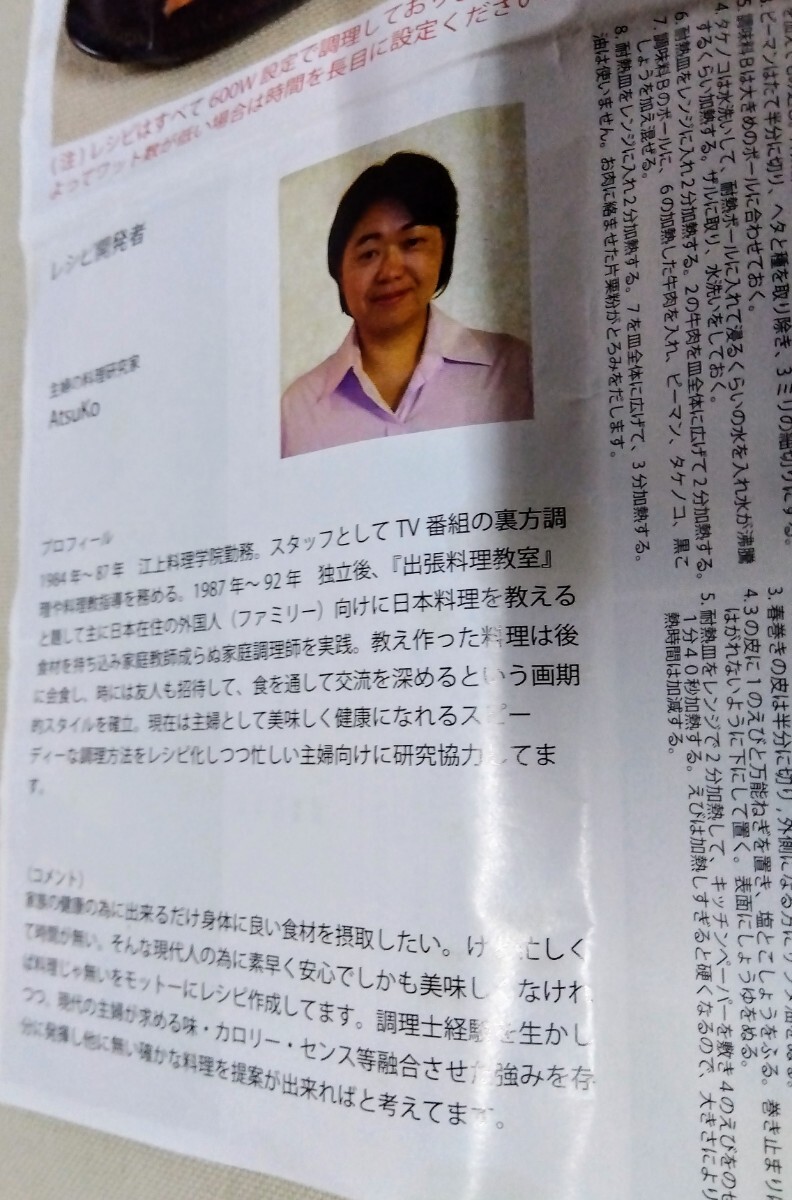 (注)レシピはすべて600W設定で調理しており
よってワット数が低い場合は時間を長目に設定ください
レシピ開発者
主婦の料理研究家
AtsuKo
プロフィール
1984年〜87年 江上料理学院勤務。スタッフとしてTV番組の裏方調
理や料理教指導を務める。1987年〜92年 独立後、『出張料理教室』
と題して主に日本在住の外国人(ファミリー)向けに日本料理を教える
食材を持ち込み家庭教師成らぬ家庭調理師を実践。教え作った料理は後
に会食し、時には友人も招待して、食を通して交流を深めるという画期
的スタイルを確立。現在は主婦として美味しく健康になれるスピー
ディーな調理方法をレシピ化しつつ忙しい主婦向けに研究協力してま
す。
(コメント)
家族の健康の為に出来るだけ身体に良い食材を摂取したい。け 忙しく
て時間が無い。そんな現代人の為に素早く安心でしかも美味し なけれ
ば料理じゃ無いをモットーにレシピ作成してます。調理士経験を生かし
つつ、現代の主婦が求める味・カロリー・センス等融合させた強みを存
分に発揮し他に無い確かな料理を提案が出来ればと考えてます。
3.ピーマンはたて半分に切り、ヘタと種を取り除き、3ミリの細切りにする。
5.調味料Bは大きめのボールに合わせておく。
4.タケノコは水洗いして、耐熱ボールに入れて浸るくらいの水を入れ水が沸騰
するくらい加熱する。ザルに取り、水洗いをしておく。
6.耐熱皿をレンジに入れ2分加熱する。2の牛肉を皿全体に広げて2分加熱する。
7.調味料Bのボールに、6の加熱した牛肉を入れ、ピーマン、タケノコ、黒こ
しょうを加え混ぜる。
8.耐熱皿をレンジに入れ2分加熱する。7を皿全体に広げて、3分加熱する。
油は使いません。お肉に絡ませた片栗粉がとろみをだします。
3.春巻きの皮は半分に切り,外側になる方に
4.3の皮に1のえびと万能ねぎを置き、塩とこしょうをふる。巻き止まり
はがれないように下にして置く。表面にしょうゆをぬる。
5.耐熱皿をレンジで2分加熱して、キッチンペーパーを敷き4のえびをのせ
1分40秒加熱する。えびは加熱しすぎると硬くなるので、大きさにより
熱時間は加減する。